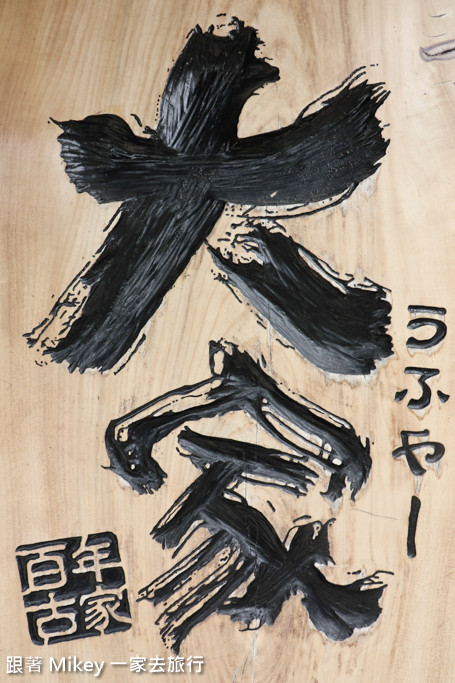 大家
うふやー
百年
古家
跟著 Mikey 一家去旅行